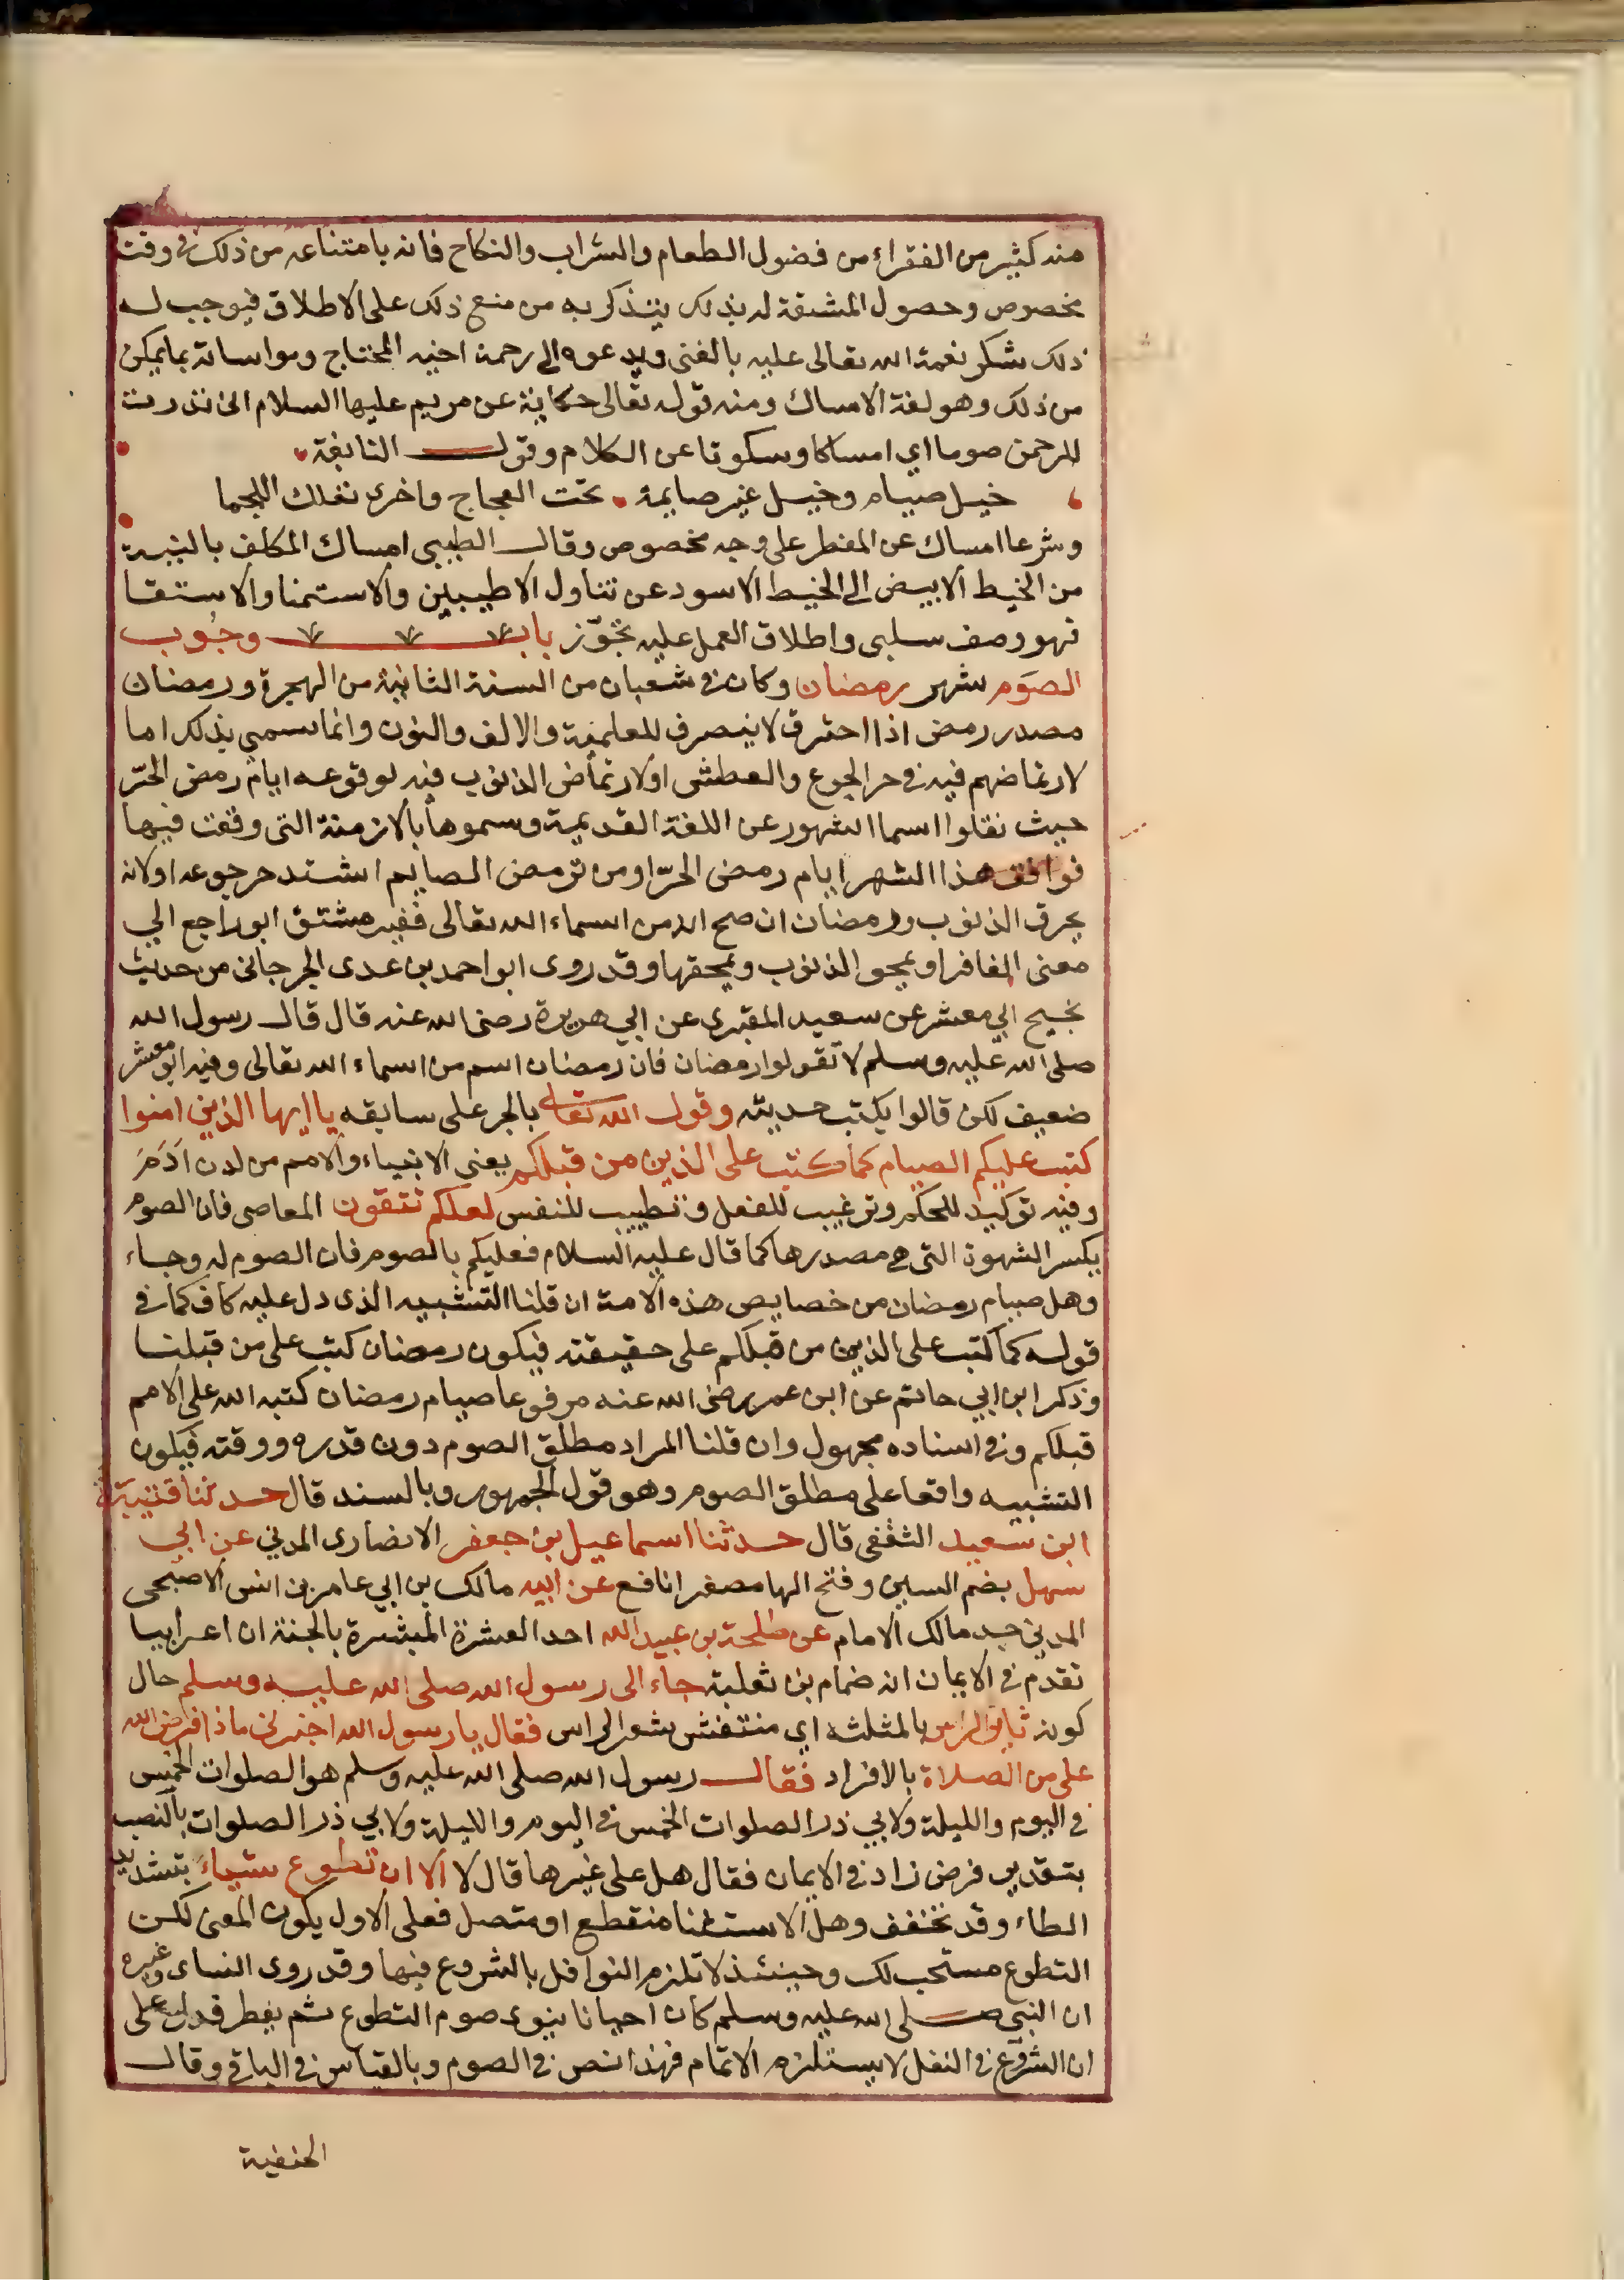 منه كثير من الفقراء من فضول الطعام والشراب والنكاح فانه بامتناعه من ذلك في وقت
مخصوص وحصول المشقة له بذلك يتذكر به من منع ذلك على الاطلاق فيوجب له
ذلك شكر نعمة الله تعالى عليه بالغنى ويدعوه الى رحمة اخيه المحتاج ومواساته بما يمكن
من ذلك وهو لغة الامساك ومنه قوله تعالى حكاية عن مريم عليها السلام انى نذرت
للرحمن صوما اي امساكا وسكوتا عن الكلام وقول النابغة
خيل صيام وخيل غير صايمة تحت العجاج واخرى تعلك اللجما
وشرعا امساك عن المفطر على وجه مخصوص وقال الطيبي امساك المكلف بالنية
من الخيط الابيض الى الخيط الاسود عن تناول الاطيبين والاستمنا والاستقا
فهو وصف سلبى واطلاق العمل عليه تجوّز باب وجُوب
الصَوم شهر رمضان وكان في شعبان من السنة الثانية من الهجرة ورمضان
مصدر رمض اذا احترق لا ينصرف للعلمية والالف والنون وانما سمي بذلك اما
لارتماضهم فيه في حر الجوع والعطش او لارتماض الذنوب فيه لوقوعه ايام رمض الحرّ
حيث نقلوا اسما الشهور عن اللغة القديمة وسموها بالازمنة التى وقعت فيها
فوافق هذا الشهر ايام رمض الحرّ او من ترمض الصايم اشتد حر جوعه او لانه
يحرق الذنوب ورمضان ان صح انه من اسماء الله تعالى فغير مشتق او راجع الي
معنى الغافر او يمحو الذنوب ويمحقها وقد روى ابو احمد بن عدى الجرجانى من حديث
نجيح ابي معشر عن سعيد المقبرى عن ابي هريرة رضى الله عنه قال قال رسول الله
صلى الله عليه وسلم لا تقولوا رمضان فان رمضان اسم من اسماء الله تعالى وفيه ابو معشر
ضعيف لكن قالوا يكتب حديثه وقول الله تعالى بالجر على سابقه يا ايها الذين امنوا
كتب عليكم الصيام كما كتب على الذين من قبلكم يعنى الانبياء والامم من لدن ادَمَ
وفيه توكيد للحكم وترغيب للفعل وتطييب للنفس لعلكم تتقون المعاصى فان الصوم
يكسر الشهوة التى هي مصدرها كما قال عليه السلام فعليكم بالصوم فان الصوم له وجاء
وهل صيام رمضان من خصايص هذه الامة ان قلنا التشبيه الذى دل عليه كاف كما في
قوله كما كتب على الذين من قبلكم على حقيقته فيكون رمضان كتب على من قبلنا
وذكر ابن ابي حاتم عن ابن عمر رضى الله عنه مرفوعا صيام رمضان كتبه الله على الامم
قبلكم وفي اسناده مجهول وان قلنا المراد مطلق الصوم دون قدره ووقته فيكون
التشبيه واقعا على مطلق الصوم وهو قول الجمهور وبالسند قال حدثنا قتيبة
ابن سعيد الثقفى قال حدثنا اسماعيل بن جعفر الانصارى المدني عن ابي
سهيل بضم السين وفتح الها مصغرا نافع عن ابيه مالك بن ابي عامر بن انس الاصبحى
المدني جد مالك الامام عن طلحة بن عبيد الله احد العشرة المبشرة بالجنة ان اعرابيا
تقدم في الايمان انه ضمام بن ثعلبة جاء الى رسول الله صلى الله عليه وسلم حال
كونه ثاير الراس بالمثلثه اي منتفش شعر الراس فقال يا رسول الله اخبرنى ماذا فرض الله
على من الصلاة بالافراد فقال رسول الله صلى الله عليه وسلم هو الصلوات الخمس
في اليوم والليلة ولابي ذر الصلوات الخمس في اليوم والليلة ولابي ذر الصلوات بالنصب
بتقدير فرض زاد في الايمان فقال هل على غيرها قال لا الا ان تطوع شياء بتشديد
الطاء وقد تخفف وهل الاستثنا منقطع او متصل فعلى الاول يكون المعنى لكن
التطوع مستحب لك وحينئذ لا تلزم النوافل بالشروع فيها وقد روى النساى وغيره
ان النبى صلى الله عليه وسلم كان احيانا ينوى صوم التطوع ثم يفطر فدل على
ان الشروع في النفل لا يستلزم الاتمام فهذا نص في الصوم وبالقياس في الباقي وقال
الحنفية